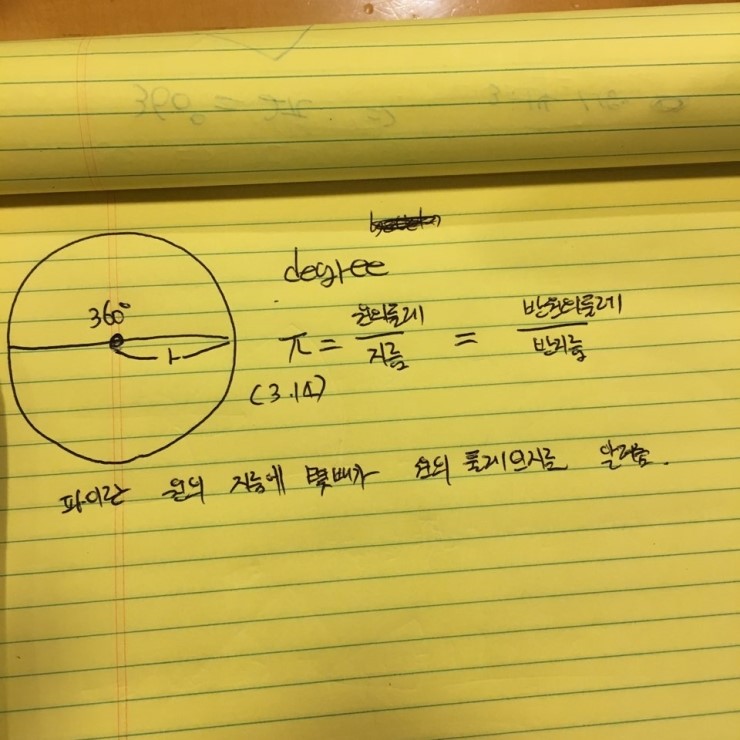 degree
360°
r
π = 원의둘레 / 지름 = 반원의둘레 / 반지름
(3.14)
파이란 원의 지름에 몇배가 원의 둘레인지를 알려줌.